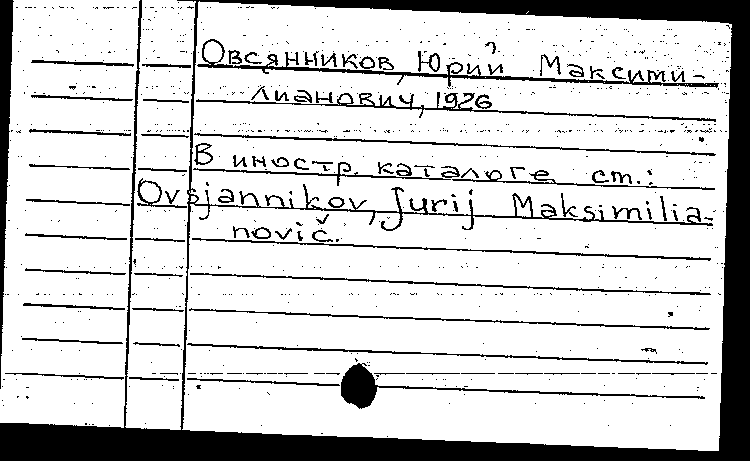 Овсянников, Юрий Максими-
лианович, 1926
В иностр. каталоге ст.:
Ovsjannikov, Jurij Maksimilia-
novič.